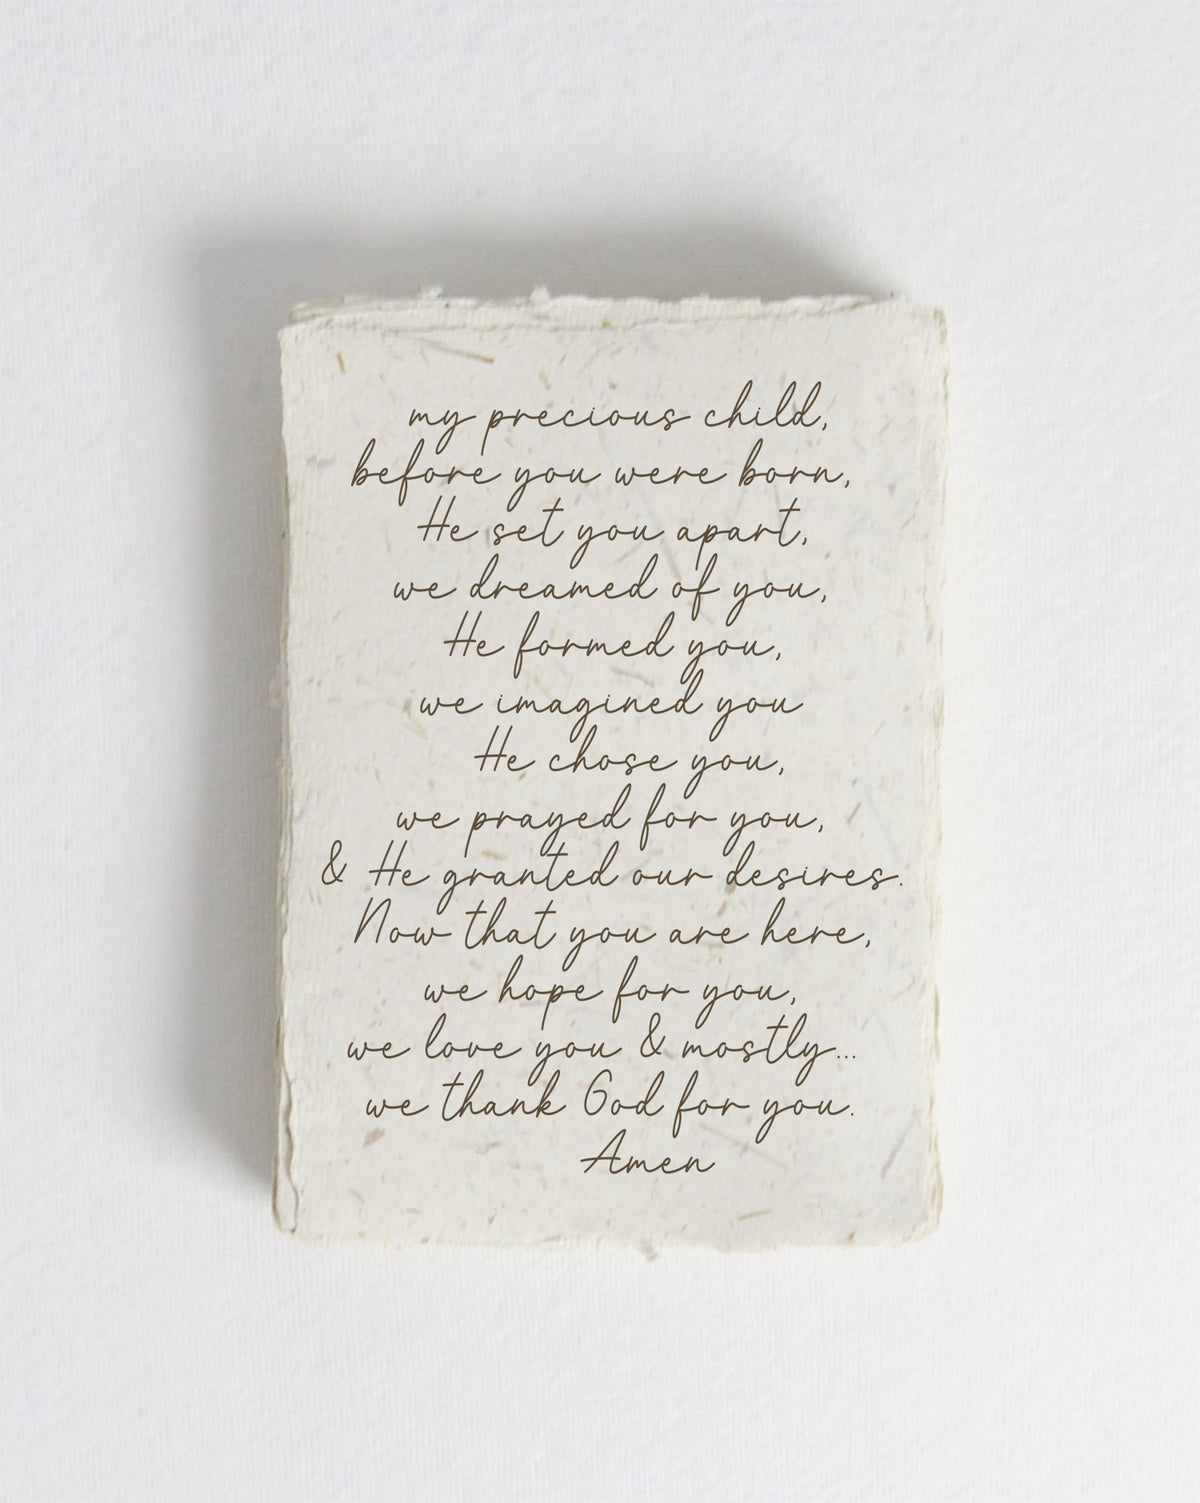 my precious child,
before you were born,
He set you apart,
we dreamed of you,
He formed you,
we imagined you
He chose you,
we prayed for you,
& He granted our desires.
Now that you are here,
we hope for you,
we love you & mostly...
we thank God for you.
Amen